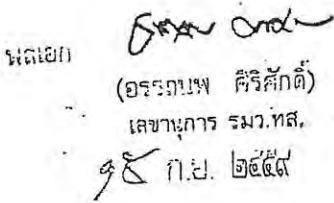 พลเอก
(อรรถนพ ศิริศักดิ์)
เลขานุการ รมว.ทส.
ก.ย. ๒๕๕๙